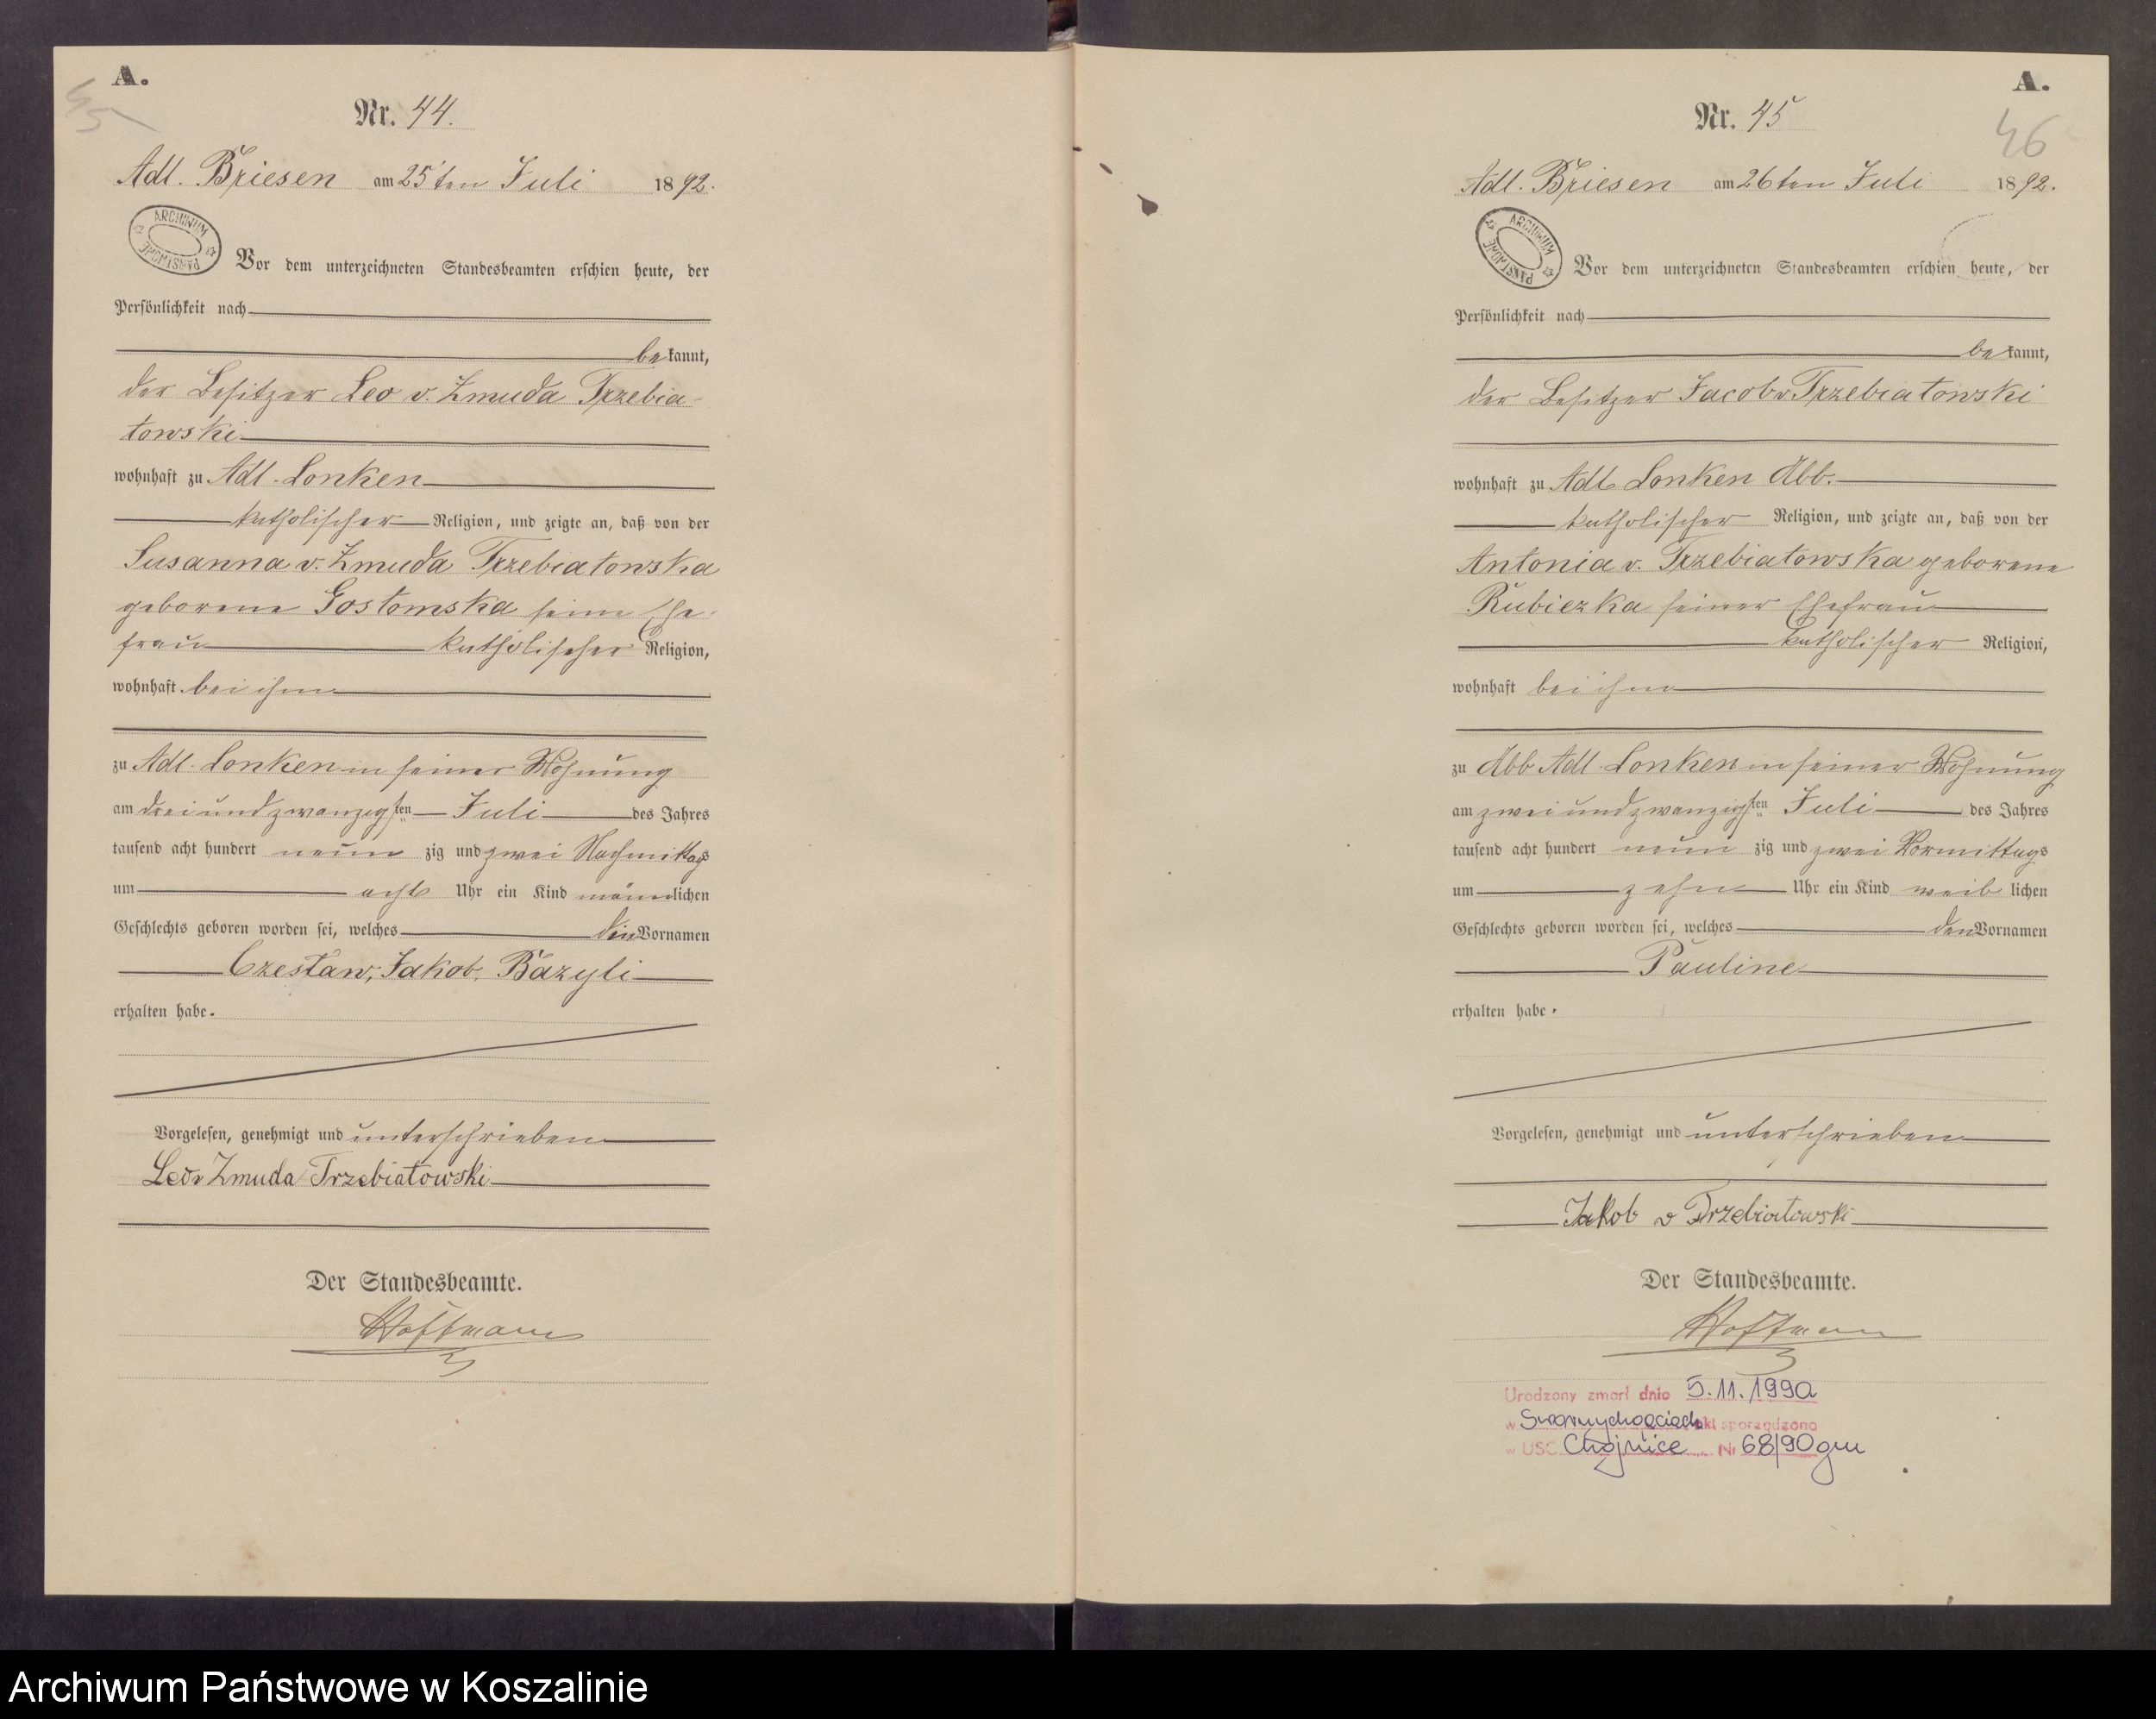 A.
45
Nr. 44.
Adl. Briesen am 25ten Juli 1892.
ARCHIWUM PAŃSTWOWE
Vor dem unterzeichneten Standesbeamten erschien heute, der
Persönlichkeit nach
bekannt,
der Besitzer Leo v. Zmuda Trzebia-
towski
wohnhaft zu Adl. Lonken
katholischer Religion, und zeigte an, daß von der
Susanna v. Zmuda Trzebiatowska
geborene Gostomska seine Ehe-
frau katholischer Religion,
wohnhaft bei ihm
zu Adl. Lonken in seiner Wohnung
am dreiundzwanzigsten Juli des Jahres
tausend acht hundert neunzig und zwei Nachmittags
um acht Uhr ein Kind männlichen
Geschlechts geboren worden sei, welches die Vornamen
Czesław, Jakob, Bazyli
erhalten habe.
Vorgelesen, genehmigt und unterschrieben
Leo v Zmuda Trzebiatowski
Der Standesbeamte.
Hoffmann
A.
46
Nr. 45
Adl. Briesen am 26ten Juli 1892.
ARCHIWUM PAŃSTWOWE
Vor dem unterzeichneten Standesbeamten erschien heute, der
Persönlichkeit nach
bekannt,
der Besitzer Jacob v Trzebiatowski
wohnhaft zu Adl Lonken Abb.
katholischer Religion, und zeigte an, daß von der
Antonia v. Trzebiatowska geborene
Rubiezka seiner Ehefrau
katholischer Religion,
wohnhaft bei ihm
zu Abb Adl. Lonken in seiner Wohnung
am zweiundzwanzigsten Juli des Jahres
tausend acht hundert neunzig und zwei Vormittags
um zehn Uhr ein Kind weiblichen
Geschlechts geboren worden sei, welches den Vornamen
Pauline
erhalten habe.
Vorgelesen, genehmigt und unterschrieben
Jakob v Trzebiatowski
Der Standesbeamte.
Hoffmann
Urodzony zmarł dnia 5.11.1990
w Swornychgaciach akt sporządzono
w USC Chojnice Nr 68/90 gm
Archiwum Państwowe w Koszalinie